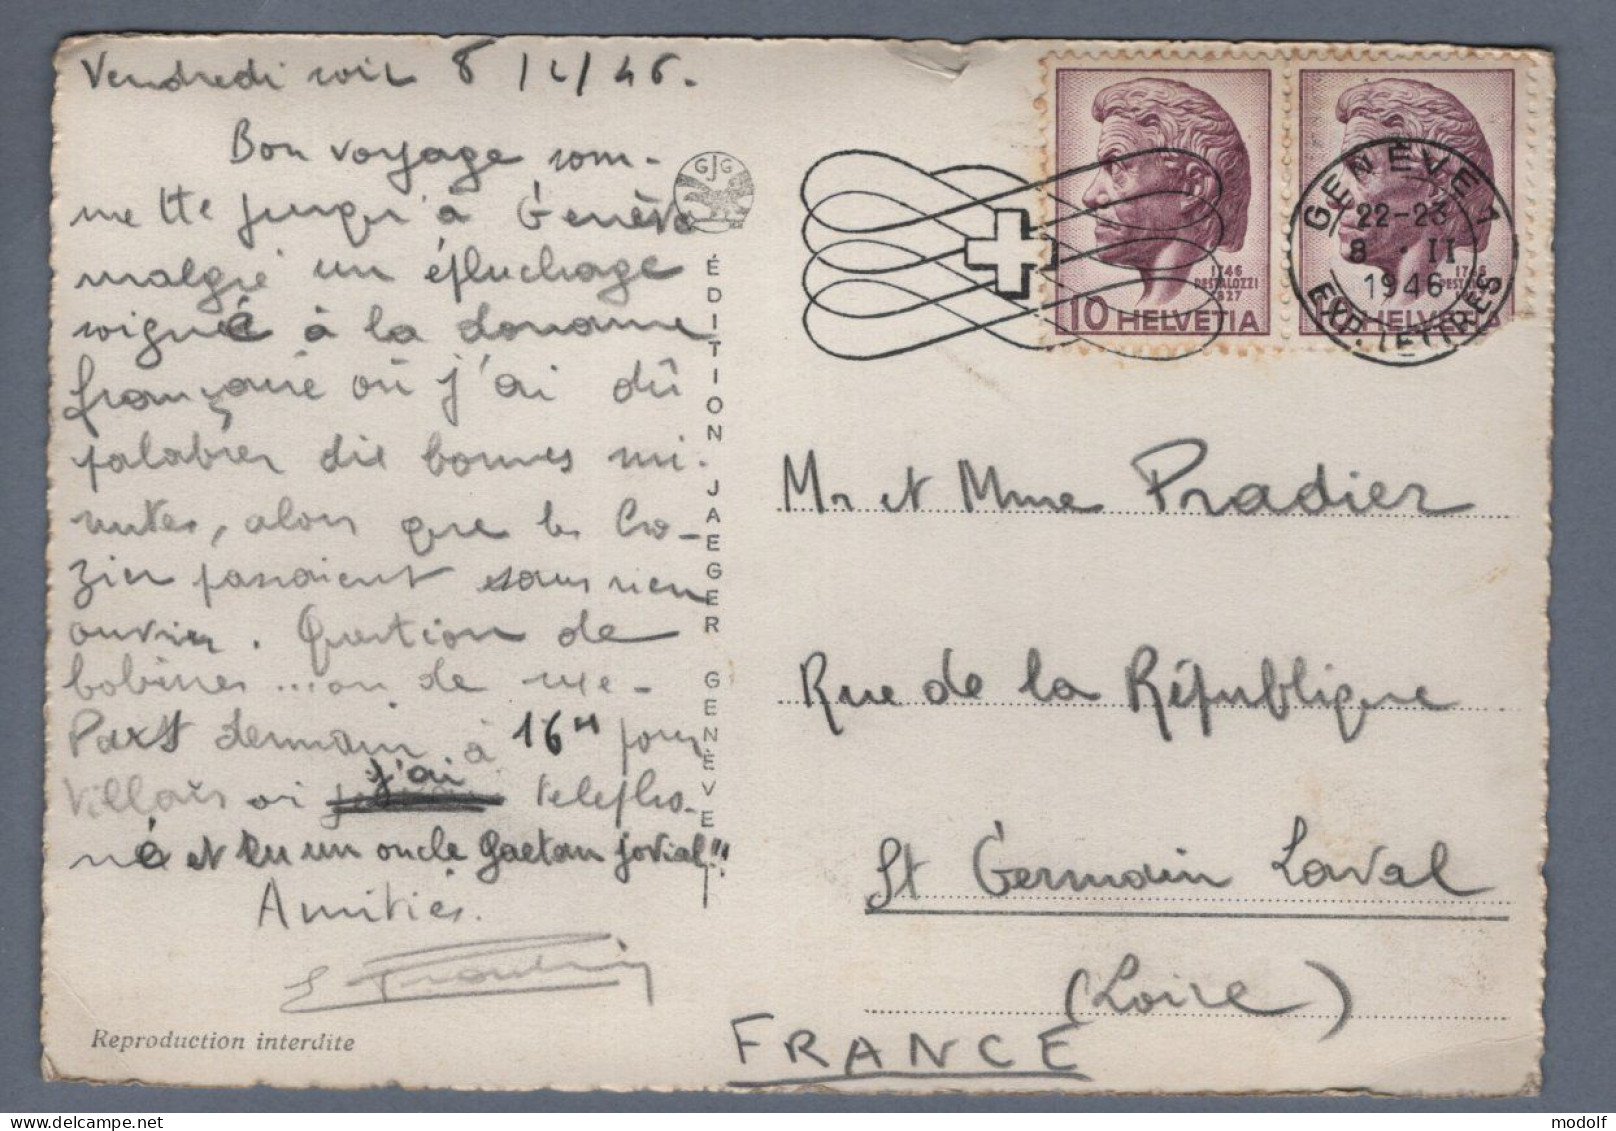 Vendredi soir 8/2/46.
Bon voyage som-
me tte jusqu'à Genève
malgré un épluchage
soigné à la douane
française où j'ai dû
palabrer dix bonnes mi-
nutes, alors que les Cro-
zier passaient sans rien
ouvrir. Question de
bobines ... ou de sexe -
Pars demain à 16H pour
Villars où j'ai télépho-
né et eu un oncle Gaetan jovial!!
Amitiés.
Reproduction interdite
GJG
ÉDITION JAEGER GENÈVE
1746
PESTALOZZI
1827
10 HELVETIA
HELVETIA
GENÈVE 1
22-23
8 · II
1946
EXP. LETTRES
Mr et Mme Pradier
Rue de la République
St Germain Laval
(Loire)
FRANCE
www.delcampe.net
modolf